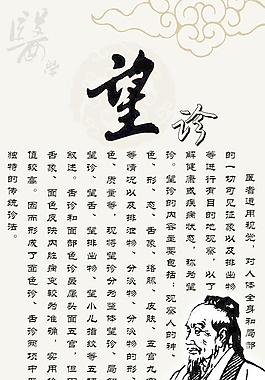 醫
望
诊
医者运用视觉，对人体全身和局部
的一切可见征象以及排出物
等进行有目的地观察，以了
解健康或疾病状态，称为望
诊。望诊的内容主要包括：观察人的神、
色、形、态、舌象、络脉、皮肤、五官九
等情况以及排泄物、分泌物、分泌物的形、
色、质量等，现将望诊分为整体望诊、局部
望诊、望舌、望排出物、望小儿指纹等五
叙述。舌诊和面部色诊虽属头面五官，但因
舌象、面色反映内脏病变较为准确，实用
值较高。因而形成了面色诊、舌诊两项中
独特的传统诊法。